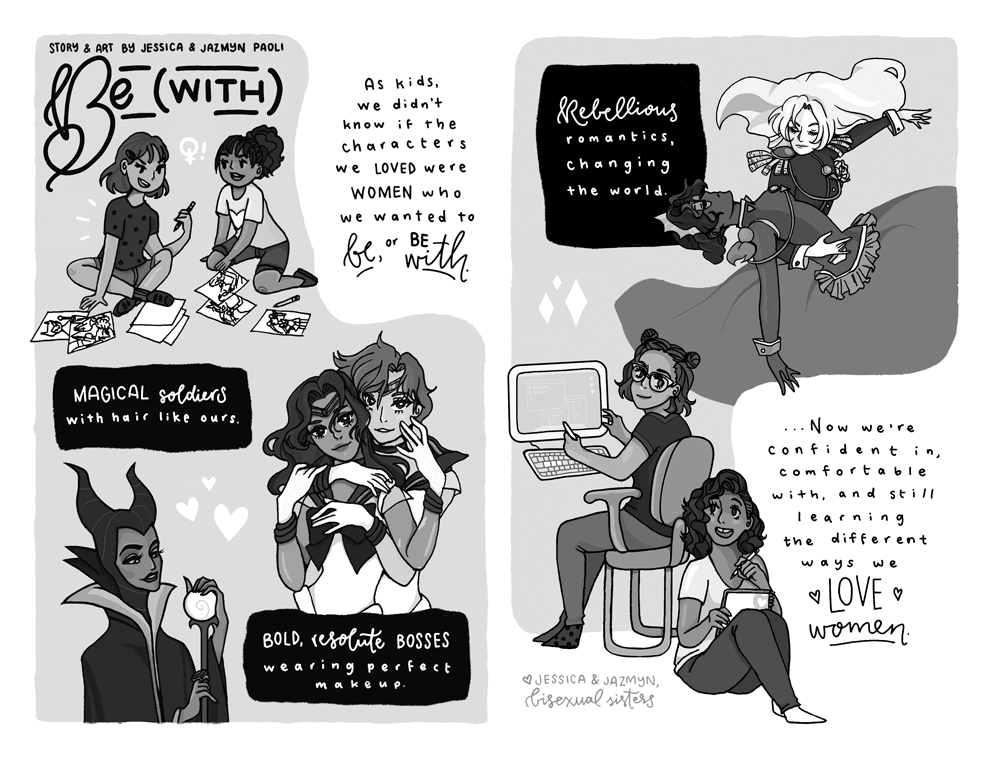 STORY & ART BY JESSICA & JAZMYN PAOLI
Be (WITH)
!
As kids,
we didn't
know if the
characters
we LOVED were
WOMEN who
we wanted to
be, or BE
with.
MAGICAL soldiers
with hair like ours.
BOLD, resolute BOSSES
wearing perfect
makeup.
Rebellious
romantics,
changing
the world.
...Now we're
confident in,
comfortable
with, and still
learning
the different
ways we
LOVE
women.
JESSICA & JAZMYN,
bisexual sisters